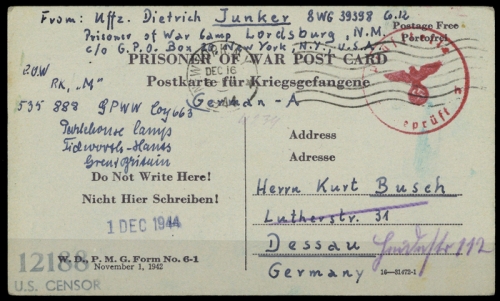 From: Uffz. Dietrich Junker 8WG 39398 Co.12
Prisoner of War Camp Lordsburg, N.M.
c/o G.P.O. Box 20, New York, N.Y., U.S.A.
Postage Free
Portofrei
PRISONER OF WAR POST CARD
DEC 16
Postkarte für Kriegsgefangene
German - A
P.O.W
PK, "M"
535 888 GPWW Coy 663
Camp
Hants
Great Britain
geprüft
Address
Adresse
Do Not Write Here!
Nicht Hier Schreiben!
1 DEC 1944
Herrn Kurt Busch
Lutherstr. 31
Dessau
Germany
12188
U.S. CENSOR
W. D., P. M. G. Form No. 6-1
November 1, 1942
16—31472-1